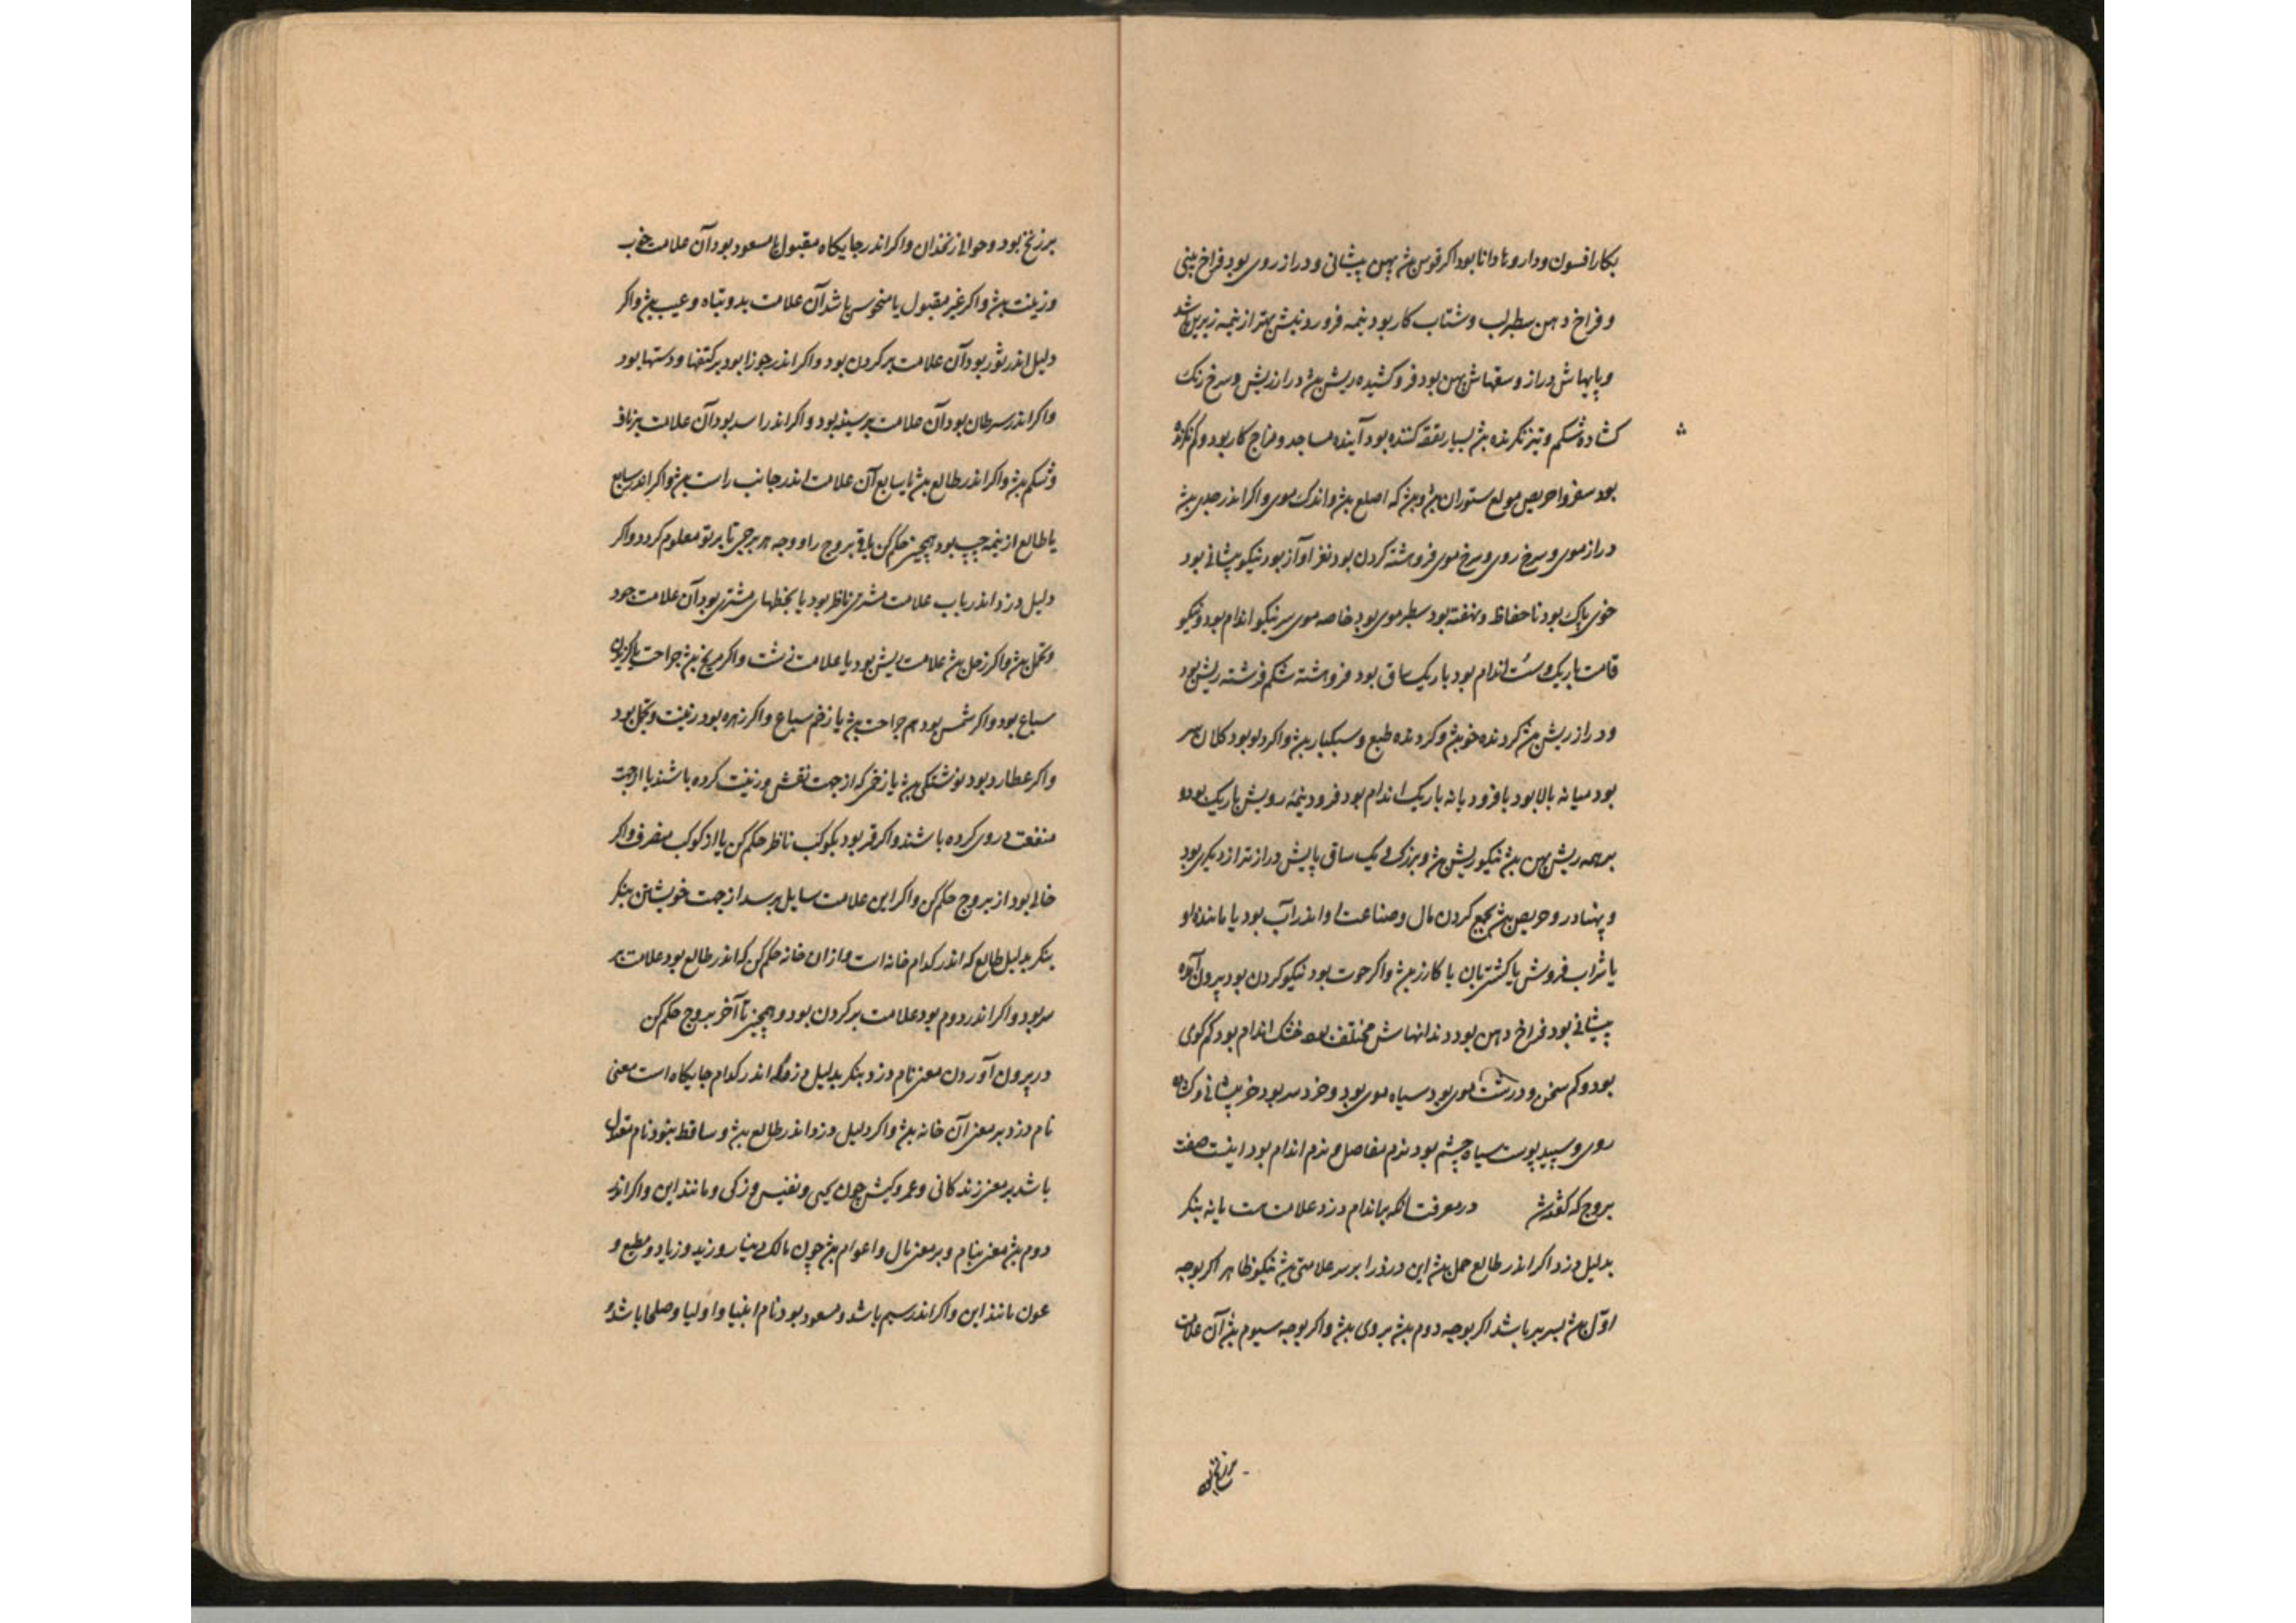 بکار افسون و داروها دانا بود اکر قوس بش پهن پیشانی و دراز روی بود فراخ بینی
و فراخ دهن سطبر لب و شتاب کار بود نیمه فرورونیش بهتر از نیمه زبرین باشد
و پایهاش دراز و سقهاش پهن بود فروکشیده ریش بش دراز ریش و سرخ رنک
کشاده شکم و تیز نکرنده بش بسیار نفقه کننده بود آینده مساجد و مزاج کار بود و کم
بود سفر و احریص مولع ستوران بش و بش که اصلع بش و اندک موی و اکر اندر جدی بش
دراز موی و سرخ روی و سرخ موی فروهشته کردن بود نغز آواز بود نیکو پیشانی بود
خوی پاک بود نا حفاظ و نهفته بود سطبر موی بود خاصه موی سر نیکو اندام بود و نیکو
قامت باریک و سست اندام بود باریک ساق بود فروهشته شکم فرشته ریش بود
و دراز ریش بش کردنده خو بش و کردنده طبع و سبکبار بش و اکر دلو بود کلان سر
بود میانه بالا بود با فرود یانه باریک اندام بود فرود نیمه رویش باریک بود و
برهمه ریش پهن بش نیکو ریش بش و بزرک و یک ساق پایش دراز تر از دیکری بود
و پهنادر و حریص بش بجمع کردن مال و صناعت او اندر آب بود یا ماننده او
یا شراب فروش یا کشتی بان یا کازر بش و اکر حوت بود نیکو کردن بود بیرون آمده
پیشانی بود فراخ دهن بود دندانهاش مختلف بود خشک اندام بود کم کوی
بود و کم سخن و درشت موی بود سیاه موی بود و خرد سر بود خرد پیشانی و کشاده
روی و سپید پوست سیاه چشم بود نرم مفاصل و نرم اندام بود اینست صفت
بروج که کفته شد در معرفت آنکه براندام دزد علامت هست یا نه بنکر
بدلیل دزد اکر اندر طالع حمل بش این دزد را برسر علامتی بش نیکو ظاهر اکر بوجه
اوّل بش بسر بر باشد اکر بوجه دوم بش بروی بش و اکر بوجه سیوم بش آن علامت
بر زنخ بود و حوالی زنخدان و اکر اندر جایکاه مقبول یا مسعود بود آن علامت خوب
و زینت بش و اکر غیر مقبول یا منحوس باشد آن علامت بد و تباه و عیب بش و اکر
دلیل اندر ثور بود آن علامت بر کردن بود و اکر اندر جوزا بود بر کتفها و دستها بود
و اکر اندر سرطان بود آن علامت بر سینه بود و اکر اندر اسد بود آن علامت بر ناف
و شکم بش و اکر اندر طالع بش یا سابع آن علامت اندر جانب راست بش و اکر اندر سابع
یا طالع از نیمه چپ بود همچنین حکم کن باقی بروج را و وجه هر برجی تا بر تو معلوم کردد و اکر
دلیل دزد اندر باب علامت مشتری ناظر بود یا بخطهای مشتری بود آن علامت جود
و تجمل بش و اکر زحل بش علامت ریش بود یا علامت زشت و اکر مریخ بش جراحت یا کزیدن
سباع بود و اکر شمس بود هم جراحت بش یا زخم سباع و اکر زهره بود زینت و تجمل بود
و اکر عطارد بود نوشتکی بش یا زخمی که از جهت نقش و زینت کرده باشند یا از جهت
منفعت روی کرده باشند و اکر قمر بود بکوکب ناظر حکم کن یا از کوکب منصرف و اکر
خالی بود از بروج حکم کن و اکر این علامت سایل پرسد از جهت خویشتن بنکر
بنکر بدلیل طالع که اندر کدام خانه است و از ان خانه حکم کن که اندر طالع بود علامت بر
سر بود و اکر اندر دوم بود علامت بر کردن بود و همچنین تا آخر بروج حکم کن
در بیرون آوردن معنی نام دزد بنکر بدلیل دزد که اندر کدام جایکاه است معنی
نام دزد بر معنی آن خانه بش و اکر دلیل دزد اندر طالع بش و ساقط نبود نام
باشد بر معنی زندکانی و عمر و کیش چون یحیی و نفیس و زکی و مانند این و اکر اندر
دوم بش معنی بنام و بر معنی مال و اعوام بش چون مالک دینار و زید و زیاد و مطیع و
عون مانند این و اکر اندر سیم باشد و مسعود بود نام انبیا و اولیا و صلحا باشد و